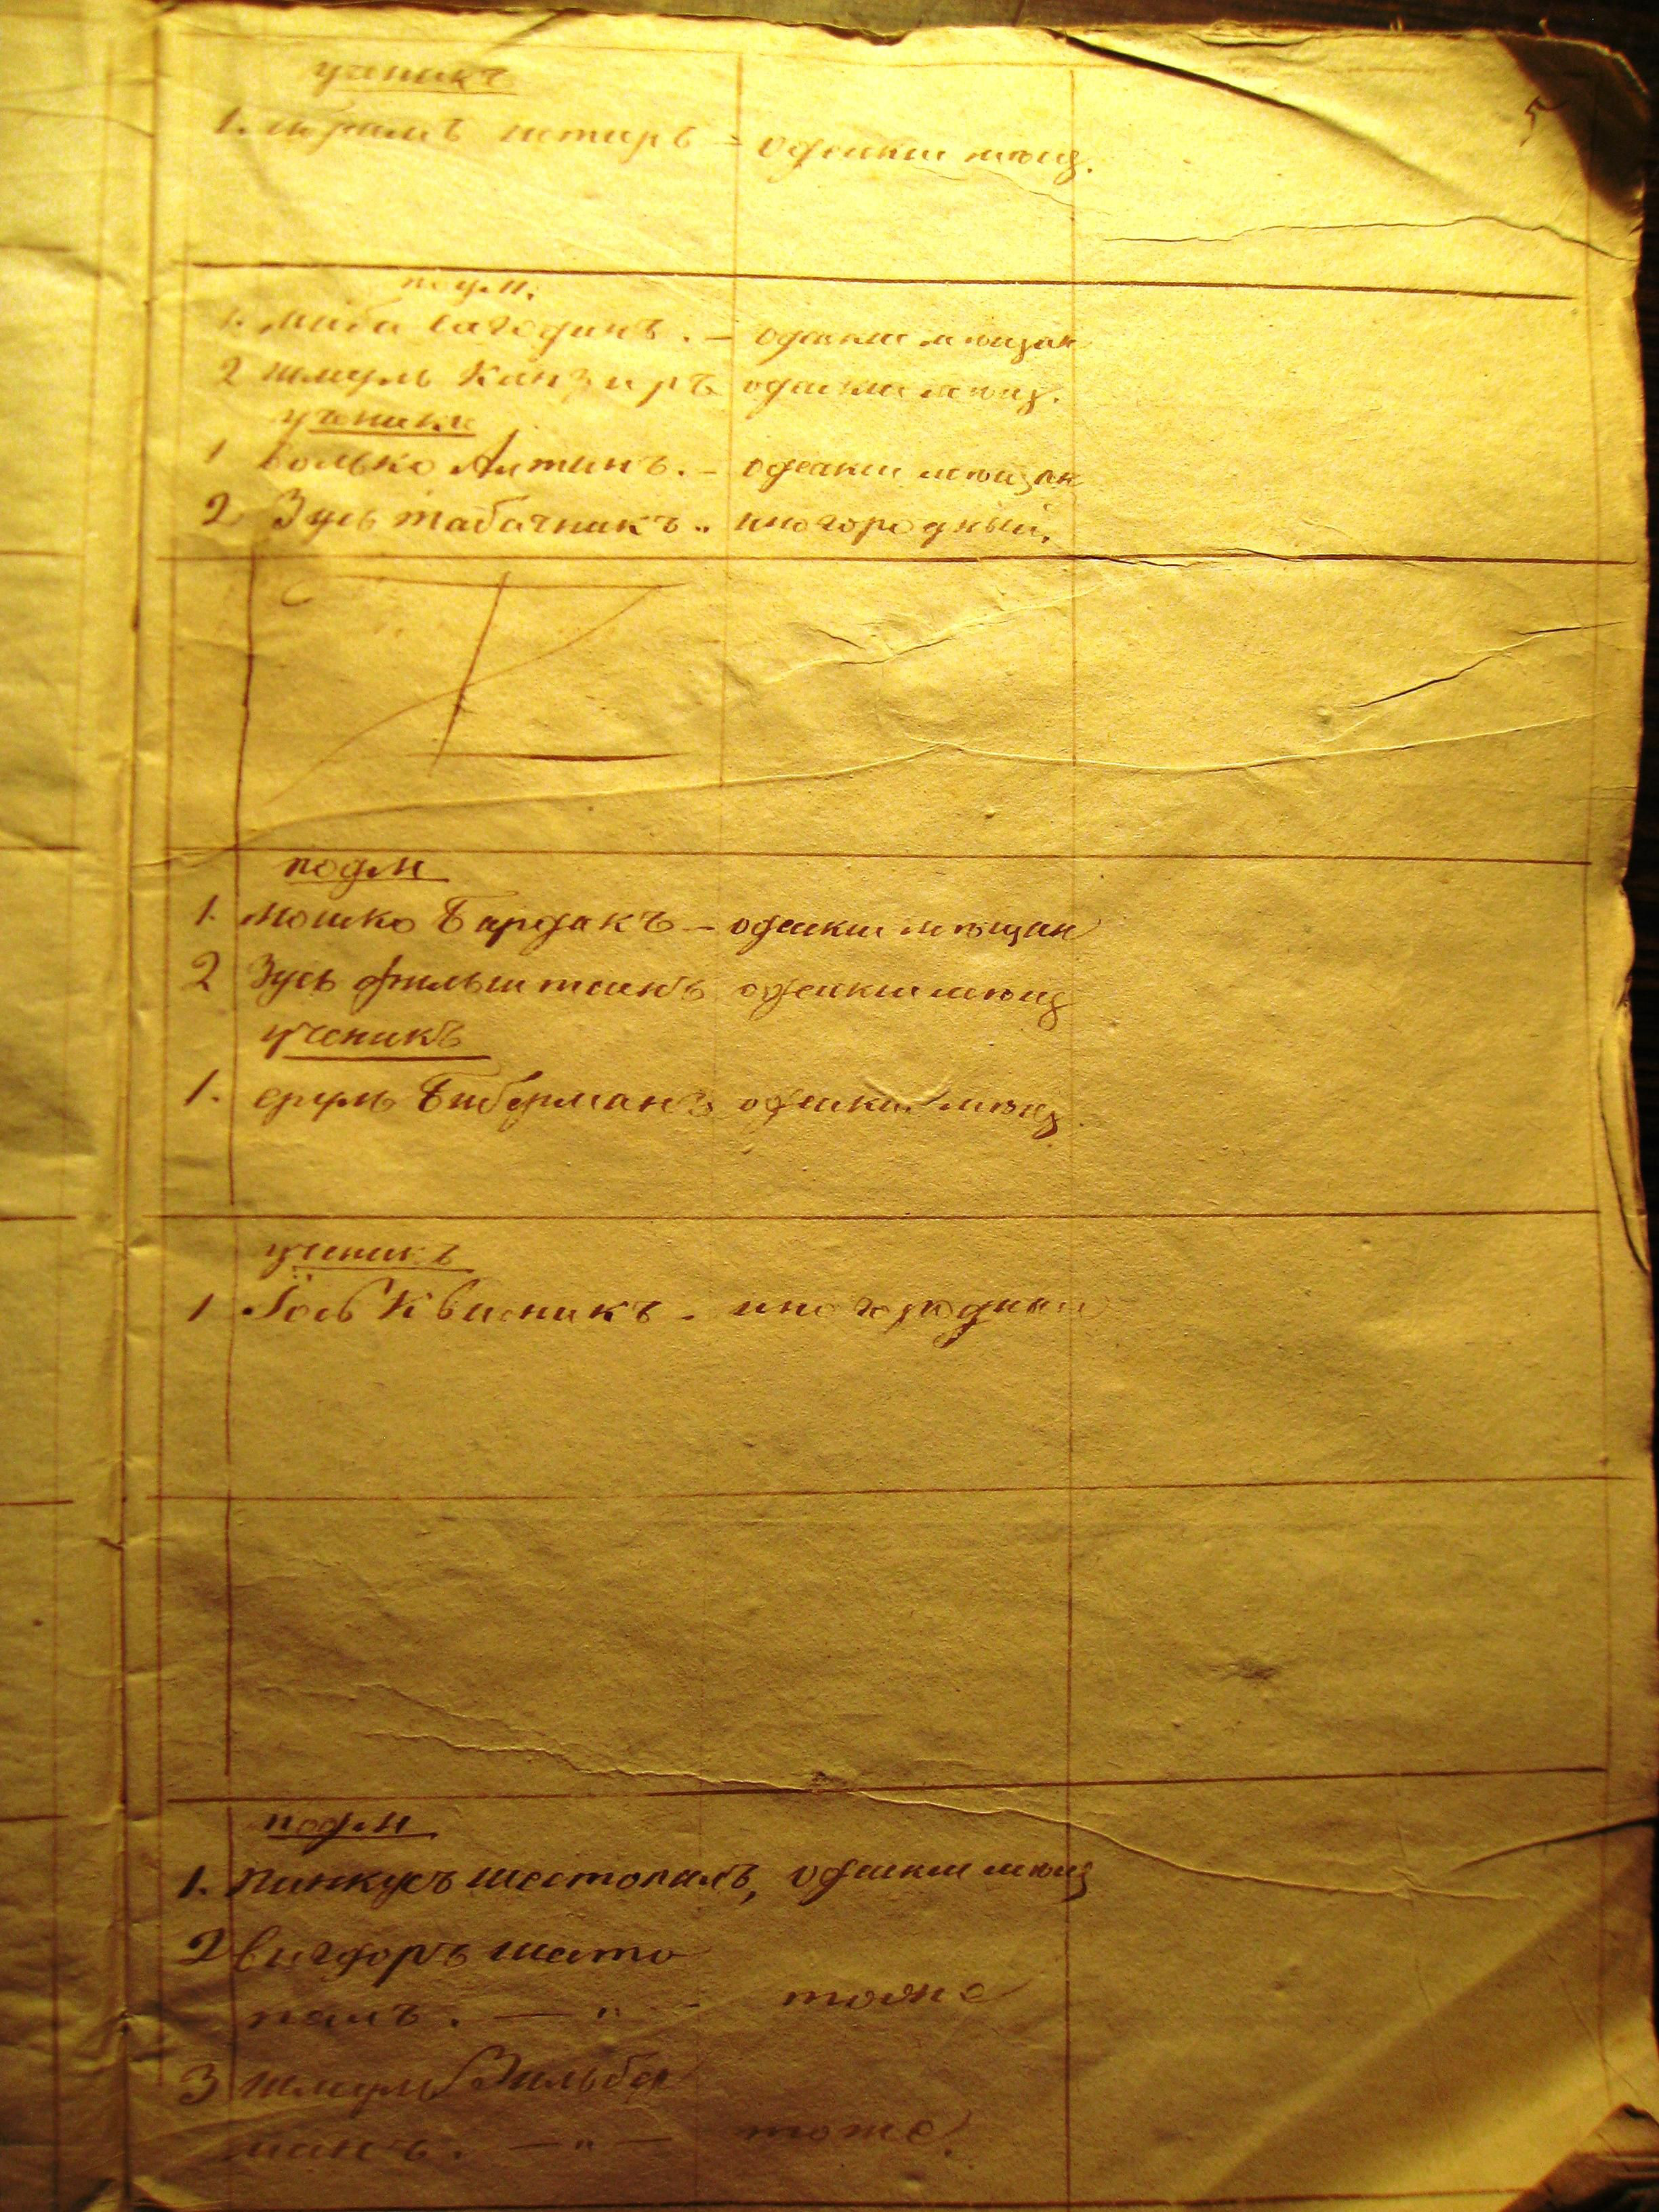 5
ученикъ
1. одескій мѣщ.
подм.
1. одескій мѣщан
2 Шмуль Канзиръ одескій мѣщ.
ученики
1 Волько Алтинъ. – одескій мѣщан
2 Зусь Табачникъ.. иногородный.
подм
1. Мошко Бардакъ – одескій мѣщан
2 Зусь Фильштеинъ одескій мѣщ
ученикъ
1. Сруль Биберманъ одескій мѣщ
ученикъ
1 Іось Квисникъ. иногородный
подм
1. Пинкусъ Шестопалъ, одескій мѣщ
2 Вигдоръ Шесто
палъ. — " - тоже
3 Шмуль Зильбер
манъ. — " — тоже.